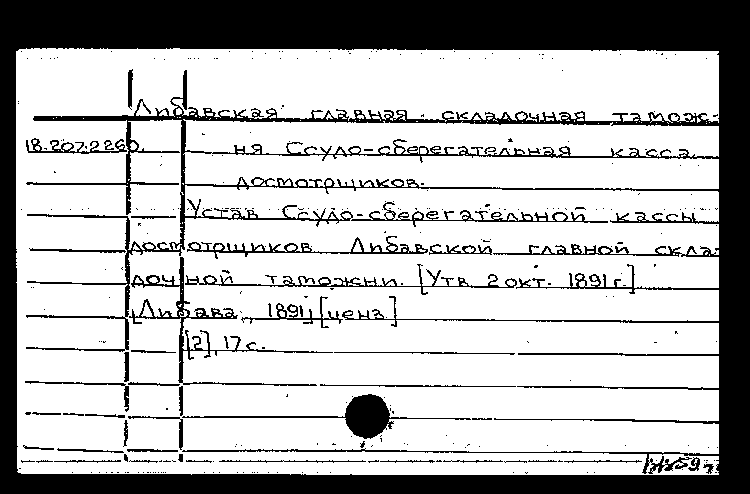 Либавская главная складочная тамож-
18.207.2260. ня Ссудо-сберегательная касса
досмотрщиков.
Устав Ссудо-сберегательной кассы
досмотрщиков Либавской главной скла-
дочной таможни. [Утв. 2 окт. 1891 г.]
[Либава, 1891] [ценз]
[2], 17 с.